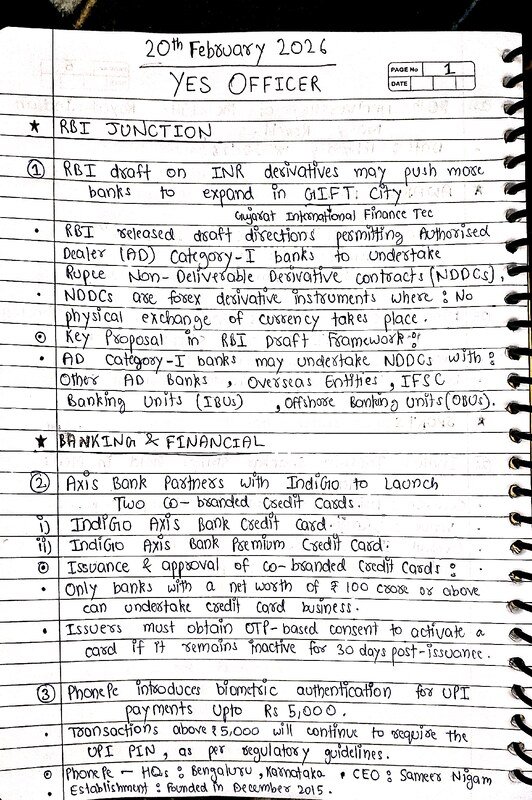 20th February 2026
YES OFFICER
PAGE No 1
DATE
★ RBI JUNCTION
① RBI draft on INR derivatives may push more
banks to expand in GIFT City
Gujarat International Finance Tec
• RBI released draft directions permitting Authorised
Dealer (AD) Category-I banks to undertake
Rupee Non-Deliverable Derivative contracts (NDDCs).
• NDDCs are forex derivative instruments where : No
physical exchange of currency takes place.
⊙ Key Proposal in RBI Draft Framework :
• AD Category-I banks may undertake NDDCs with :
Other AD Banks , Overseas Entities , IFSC
Banking Units (IBUs) , Offshore Banking Units (OBUs).
★ BANKING & FINANCIAL
② Axis Bank Partners with IndiGo to Launch
Two Co-branded Credit Cards.
i) IndiGo Axis Bank Credit Card.
ii) IndiGo Axis Bank Premium Credit Card.
⊙ Issuance & approval of co-branded Credit Cards :
• Only banks with a net worth of ₹ 100 crore or above
can undertake credit card business.
• Issuers must obtain OTP-based consent to activate a
card if it remains inactive for 30 days post-issuance.
③ PhonePe introduces biometric authentication for UPI
payments upto Rs 5,000.
• Transactions above ₹5,000 will continue to require the
UPI PIN, as per regulatory guidelines.
⊙ PhonePe – HQs : Bengaluru , Karnataka • CEO : Sameer Nigam
• Establishment : Founded in December 2015.